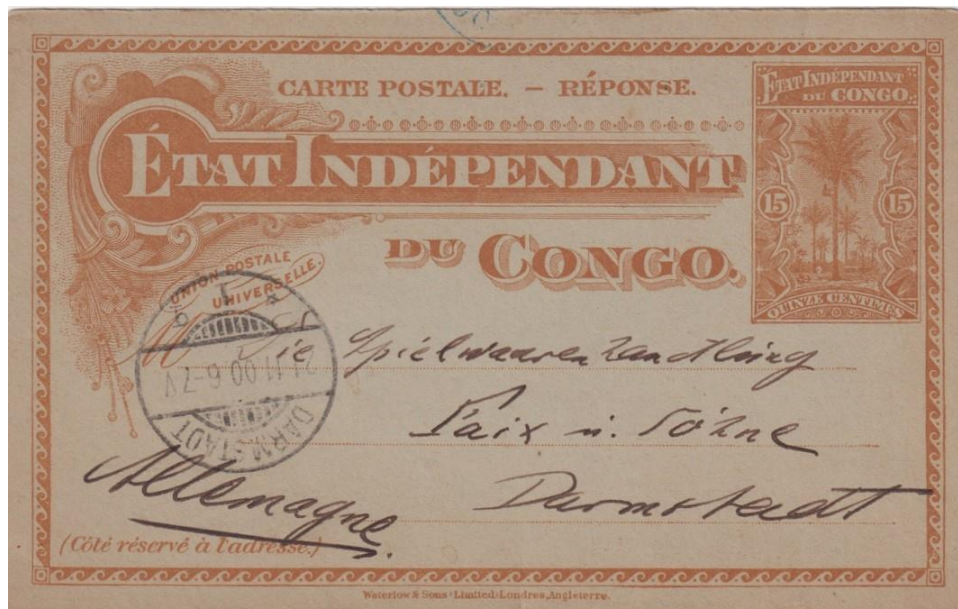 CARTE POSTALE. — RÉPONSE.
ÉTAT INDÉPENDANT
DU CONGO.
ÉTAT INDÉPENDANT
DU CONGO.
15 15
QUINZE CENTIMES
UNION POSTALE
UNIVERSELLE.
DARMSTADT
21.11.00.6-7V
Die Spielwaarenhandlung
u. Söhne
Darmstadt
Allemagne.
(Côté réservé à l'adresse.)
Waterlow & Sons Limited, Londres, Angleterre.